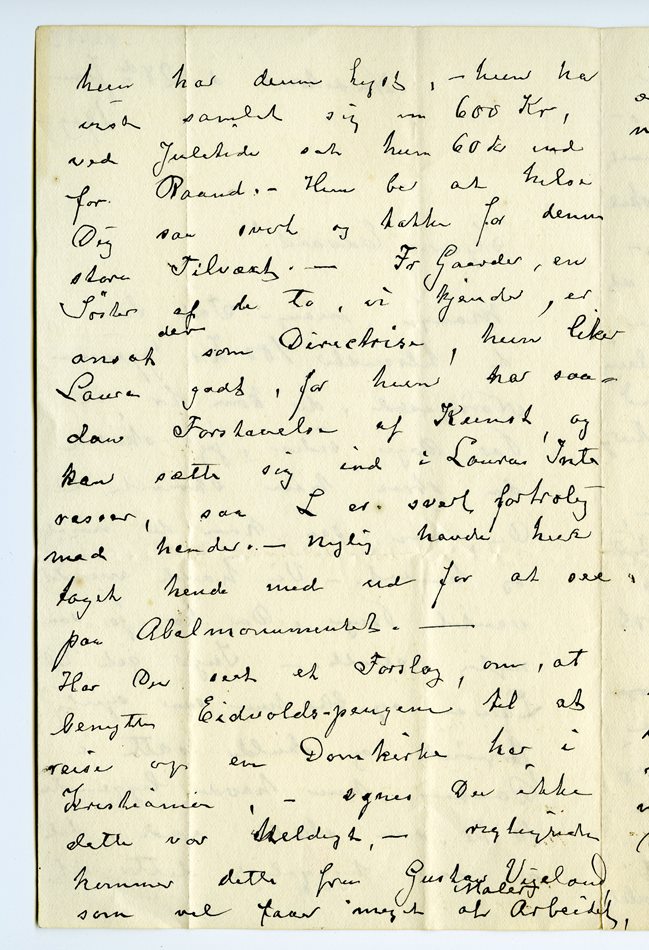 hun har denne Lyst, – hun har
vist samlet sig en 600 Kr,
ved Juletider satte hun 60 kr ind
for Raand. – Hun ber at hilse
Dig saa svert og takke for denne
store Tilvæxt. — Fr Gaarder, en
Søster af de to, vi kjender, er
ansat der som Directrise, hun liker
Laura godt, for hun har saa-
dan Forstaaelse af Kunst, og
kan sætte sig ind i Lauras Inte
resser, saa L er svert fortrolig
med hende. – nylig havde hun
taget hende med ud for at see
paa Abelmonumentet. —
Har Du seet et Forslag, om, at
benytte Eidvolds-pengene til at
reise op en Domkirke her i
Kristiania, – synes Du ikke
dette var Uheldigt, – rigtignok
kommer dette fra Gustav Vigeland,
som vel faaer meget af Arbeidet,